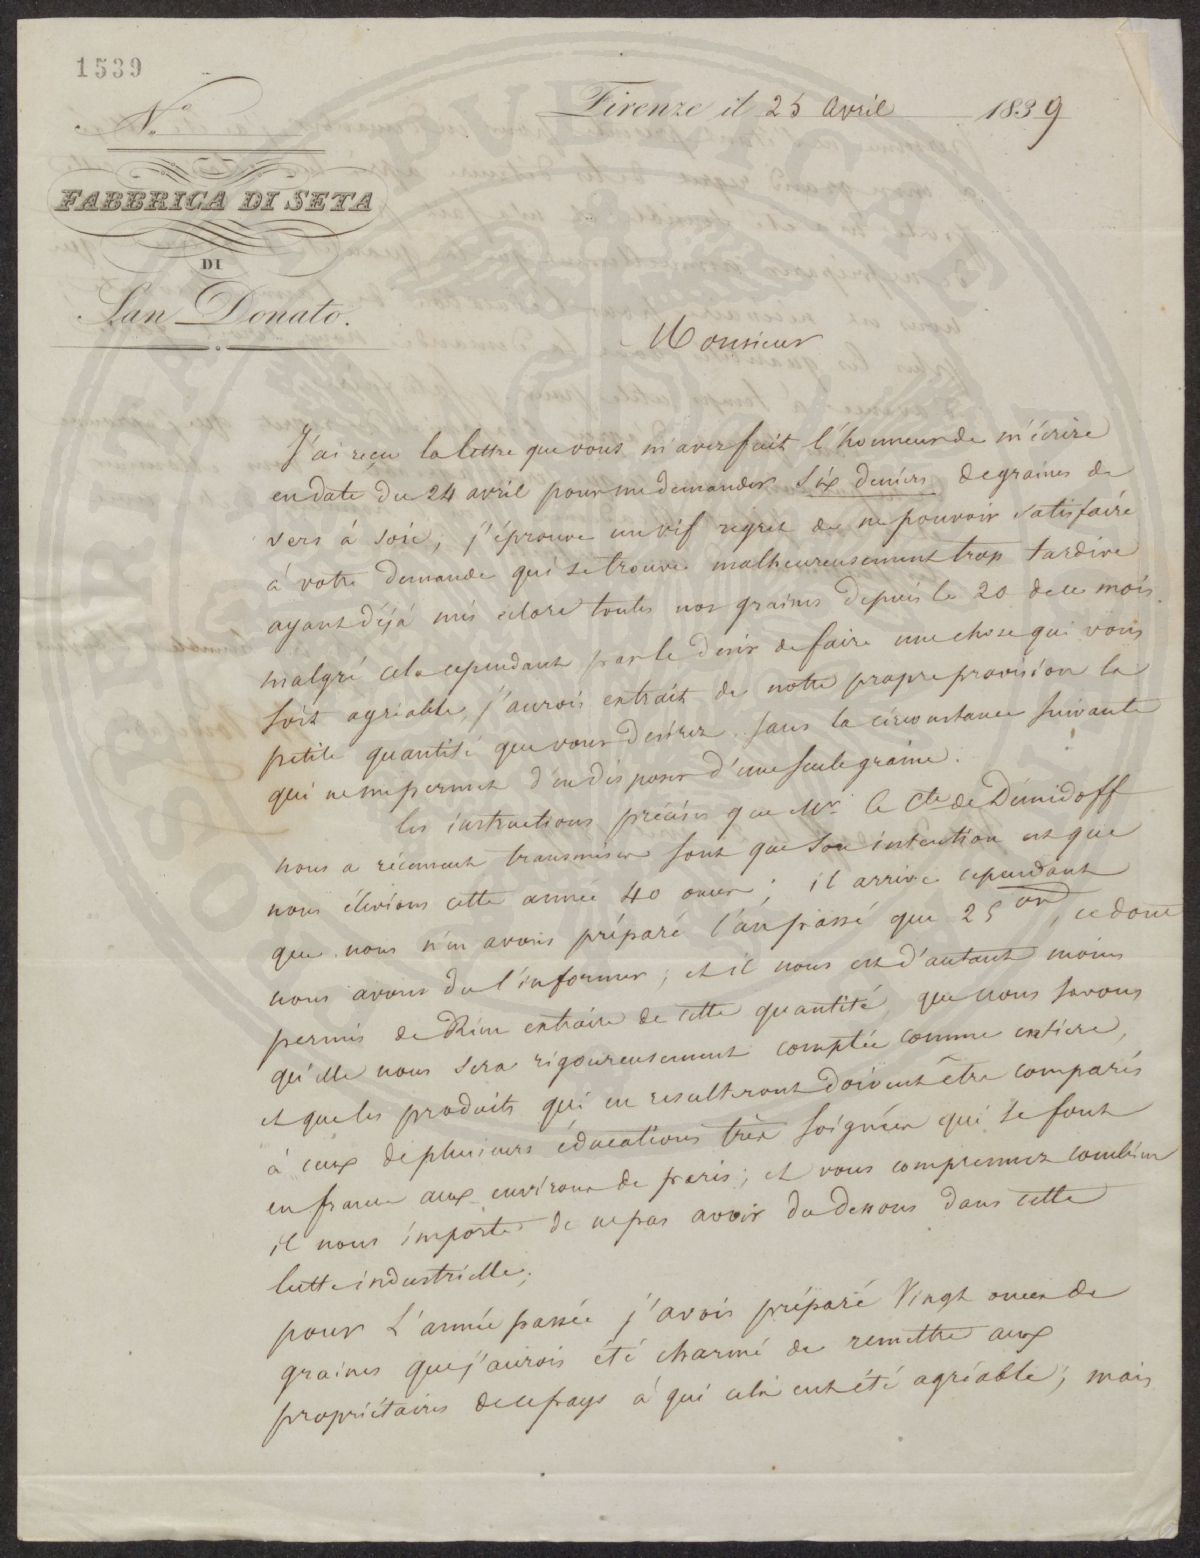 1539
N.º
Firenze il 25 avril 1839
FABBRICA DI SETA
DI
San Donato.
Monsieur
J'ai reçu la lettre que vous m'avez fait l'honneur de m'écrire
en date du 24 avril pour me demander six deniers de graines de
vers à soie, j'éprouve un vif regret de ne pouvoir satisfaire
à votre demande qui se trouve malheureusement trop tardive
ayant déjà mis eclore toutes nos graines depuis le 20 de ce mois.
malgré cela cependant par le désir de faire une chose qui vous
soit agréable, j'aurois extrait de notre propre provision la
petite quantité que vous desirez sans la circonstance suivante
qui ne me permet d'en disposer d'une seule graine.
les instructions précises que Mr. le Cte de Démidoff
nous a récemment transmises sont que son intention est que
nous élevions cette année 40 onces; il arrive cependant
que nous n'en avons préparé l'an passé que 25 on, ce dont
nous avons du l'informer; et il nous est d'autant moins
permis de Rien extraire de cette quantité, que nous savons
qu'elle nous sera rigoureusement comptée comme entiere,
et que les produits qui en resulteront doivent être comparés
à ceux de plusieurs éducations très soignées qui se font
en france aux environs de paris; et vous comprennez combien
il nous importe de ne pas avoir du dessous dans cette
lutte industrielle;
pour L'année passée j'avois préparé Vingt onces de
graines que j'aurois été charmé de remettre aux
propriétaires de ce pays à qui cela eut été agréable; mais